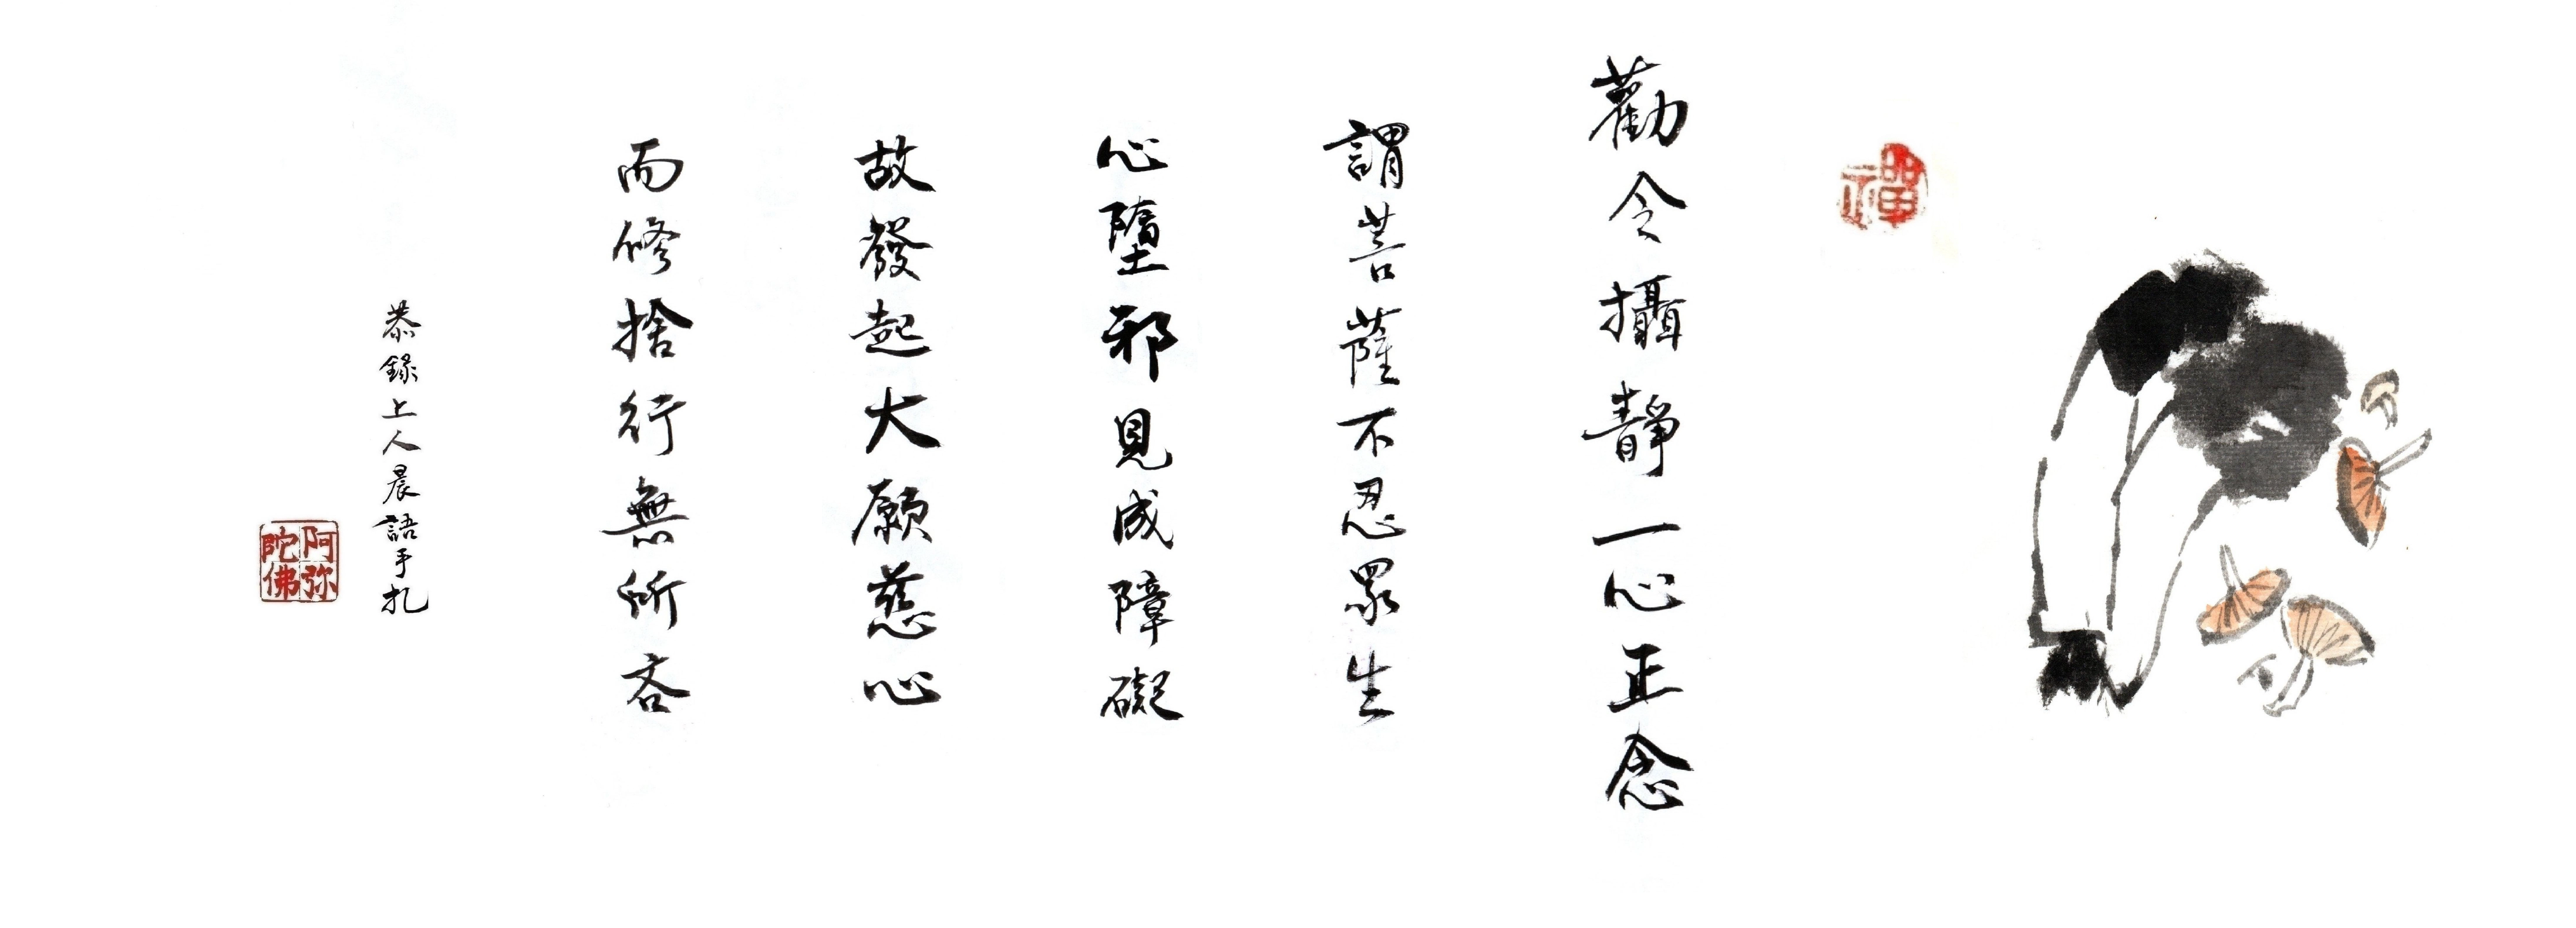 禪
勸令攝靜一心正念
謂菩薩不忍眾生
心墮邪見成障礙
故發起大願慈心
而修捨行無所吝
恭錄上人晨語手扎
阿弥陀佛